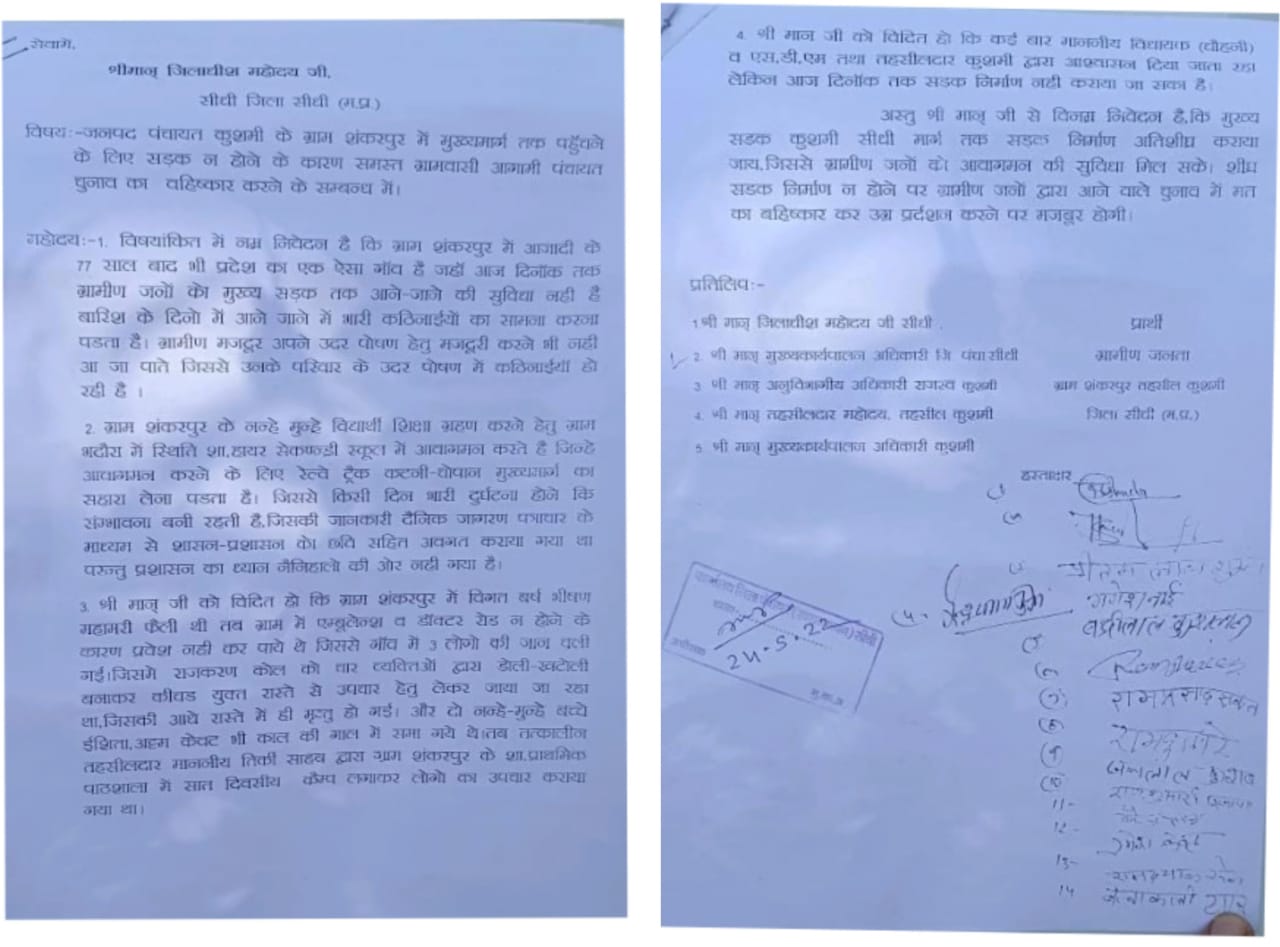 सेवामे,
श्रीमान् जिलाधीश महोदय जी,
सीधी जिला सीधी (म.प्र.)
विषयः-जनपद पंचायत कुशमी के ग्राम शंकरपुर में मुख्यमार्ग तक पहुँचने
के लिए सड़क न होने के कारण समस्त ग्रामवासी आगामी पंचायत
चुनाव का वहिष्कार करने के सम्बन्ध में।
महोदयः-1. विषयांकित में नम्र निवेदन है कि ग्राम शंकरपुर में आजादी के
77 साल बाद भी प्रदेश का एक ऐसा गॉव है जहॉ आज दिनॉक तक
ग्रामीण जनों को मुख्य सड़क तक आने-जाने की सुविधा नही है
बारिश के दिनो में आने जाने में भारी कठिनाईयों का सामना करना
पडता है। ग्रामीण मजदूर अपने उदर पोषण हेतु मजदूरी करने भी नही
आ जा पाते जिससे उनके परिवार के उदर पोषण में कठिनाईयॉ हो
रही है ।
2. ग्राम शंकरपुर के नन्हे मुन्हे विद्यार्थी शिक्षा ग्रहण करने हेतु ग्राम
भदौरा में स्थिति शा.हायर सेकण्ड्री स्कूल में आवागमन करते है जिन्हे
आवागमन करने के लिए रेल्वे ट्रैक कटनी-चोपान मुख्यमार्ग का
सहारा लेना पडता है। जिससे किसी दिन भारी दुर्घटना होने कि
संम्भावना बनी रहती है,जिसकी जानकारी दैनिक जागरण पत्राचार के
माध्यम से शासन-प्रशासन को छवि सहित अवगत कराया गया था
परन्तु प्रशासन का ध्यान नैनिहालो की ओर नही गया है।
3. श्री मान् जी को विदित हो कि ग्राम शंकरपुर में विगत बर्ष भीषण
महामरी फैली थी तब ग्राम में एम्बूलेन्श व डॉक्टर रोड न होने के
कारण प्रवेश नही कर पाये थे जिससे गॉव में 3 लोगो की जान चली
गई।जिसमे राजकरण कोल को चार व्यक्तिओं द्वारा डोली-खटोली
बनाकर कीचड युक्त रास्ते से उपचार हेतु लेकर जाया जा रहा
था,जिसकी आधे रास्ते में ही मृत्यु हो गई। और दो नन्हे-मुन्हे बच्चे
ईशिता,अहम केवट भी काल की गाल में समा गये थे।तब तत्कालीन
तहसीलदार माननीय तिर्की साहब द्वारा ग्राम शंकरपुर के शा.प्राथमिक
पाठशाला में सात दिवसीय कैम्प लगाकर लोगो का उपचार कराया
गया था।
4. श्री मान् जी को विदित हो कि कई बार माननीय विधायक (धौहनी)
व एस.डी.एम तथा तहसीलदार कुशमी द्वारा आश्वासन दिया जाता रहा
लेकिन आज दिनॉक तक सडक निर्माण नही कराया जा सका है।
अस्तु श्री मान् जी से विनम्र निवेदन है,कि मुख्य
सड़क कुशमी सीधी मार्ग तक सड़क निर्माण अतिशीघ्र कराया
जाय,जिससे ग्रामीण जनों को आवागमन की सुविधा मिल सके। शीघ्र
सड़क निर्माण न होने पर ग्रामीण जनों द्वारा आने वाले चुनाव में मत
का बहिष्कार कर उग्र प्रर्दशन करने पर मजबूर होगी।
प्रतिलिपः-
1.श्री मान् जिलाधीश महोदय जी सीधी .
प्रार्थी
2. श्री मान् मुख्यकार्यपालन अधिकारी जि पंचा सीधी
ग्रामीण जनता
3. श्री मान् अनुविभागीय अधिकारी राजस्व कुशमी
ग्राम शंकरपुर तहसील कुशमी
4. श्री मान् तहसीलदार महोदय, तहसील कुशमी
जिला सीधी (म.प्र.)
5. श्री मान् मुख्यकार्यपालन अधिकारी कुशमी
हस्ताक्षर
24.5.22
गणेश
रामप्रसाद
11-
12-
13-
14